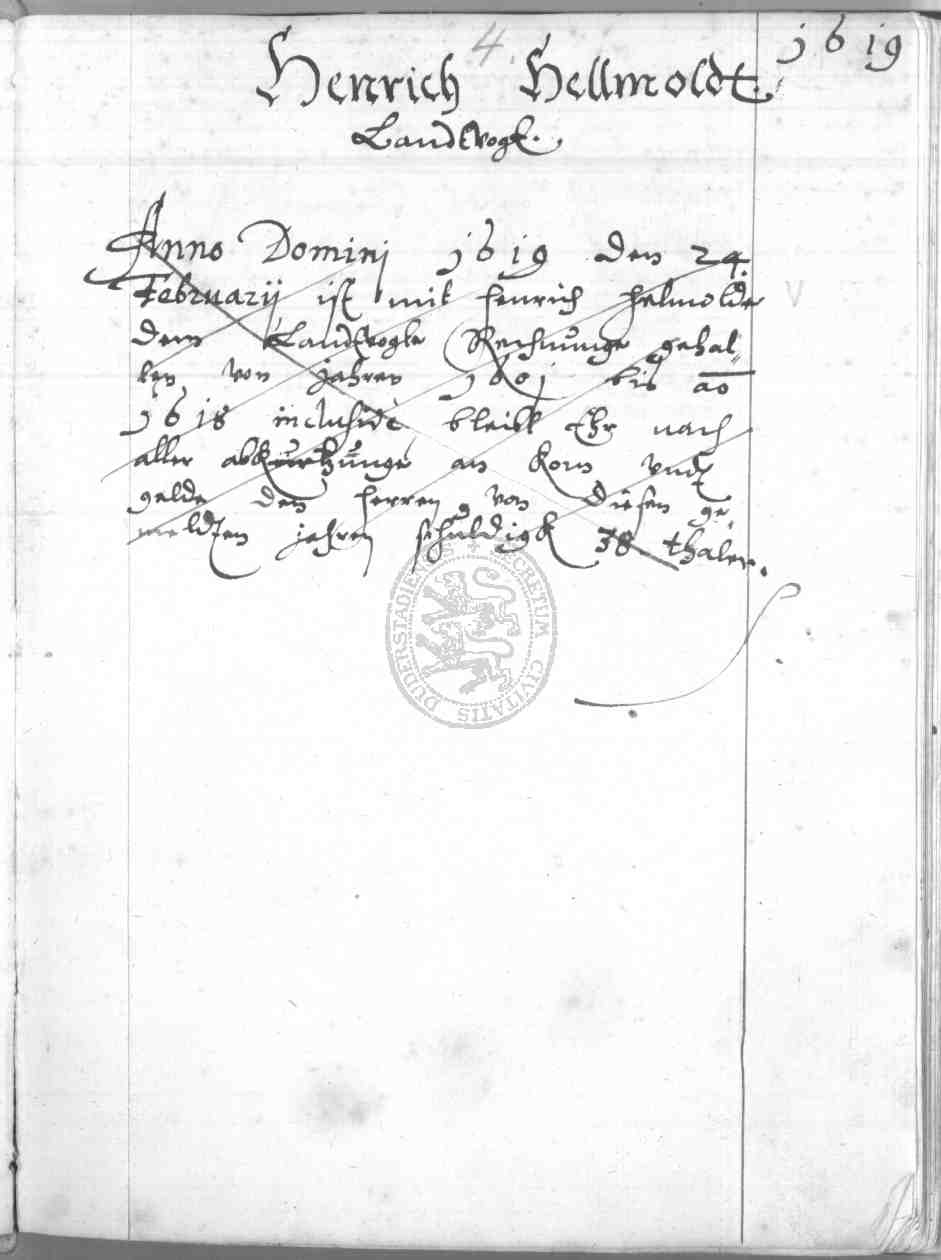 4
1619
Henrich Hellmoldt.
Landtvogt.
Anno Domini 1619 den 24
Februarij ist mit Henrich Helmolde
dem Landtvogte Rechnunge gehal-
ten von jahren 1601 bis ao
1618 inclusive, bleibt Ehr nach
aller abkurtzunge an Korn vndt
gelde den Herren von diesen ge
meldten jahren schuldigk 38 thaler.
SECRETUM CIVITATIS DUDERSTADIENSIS